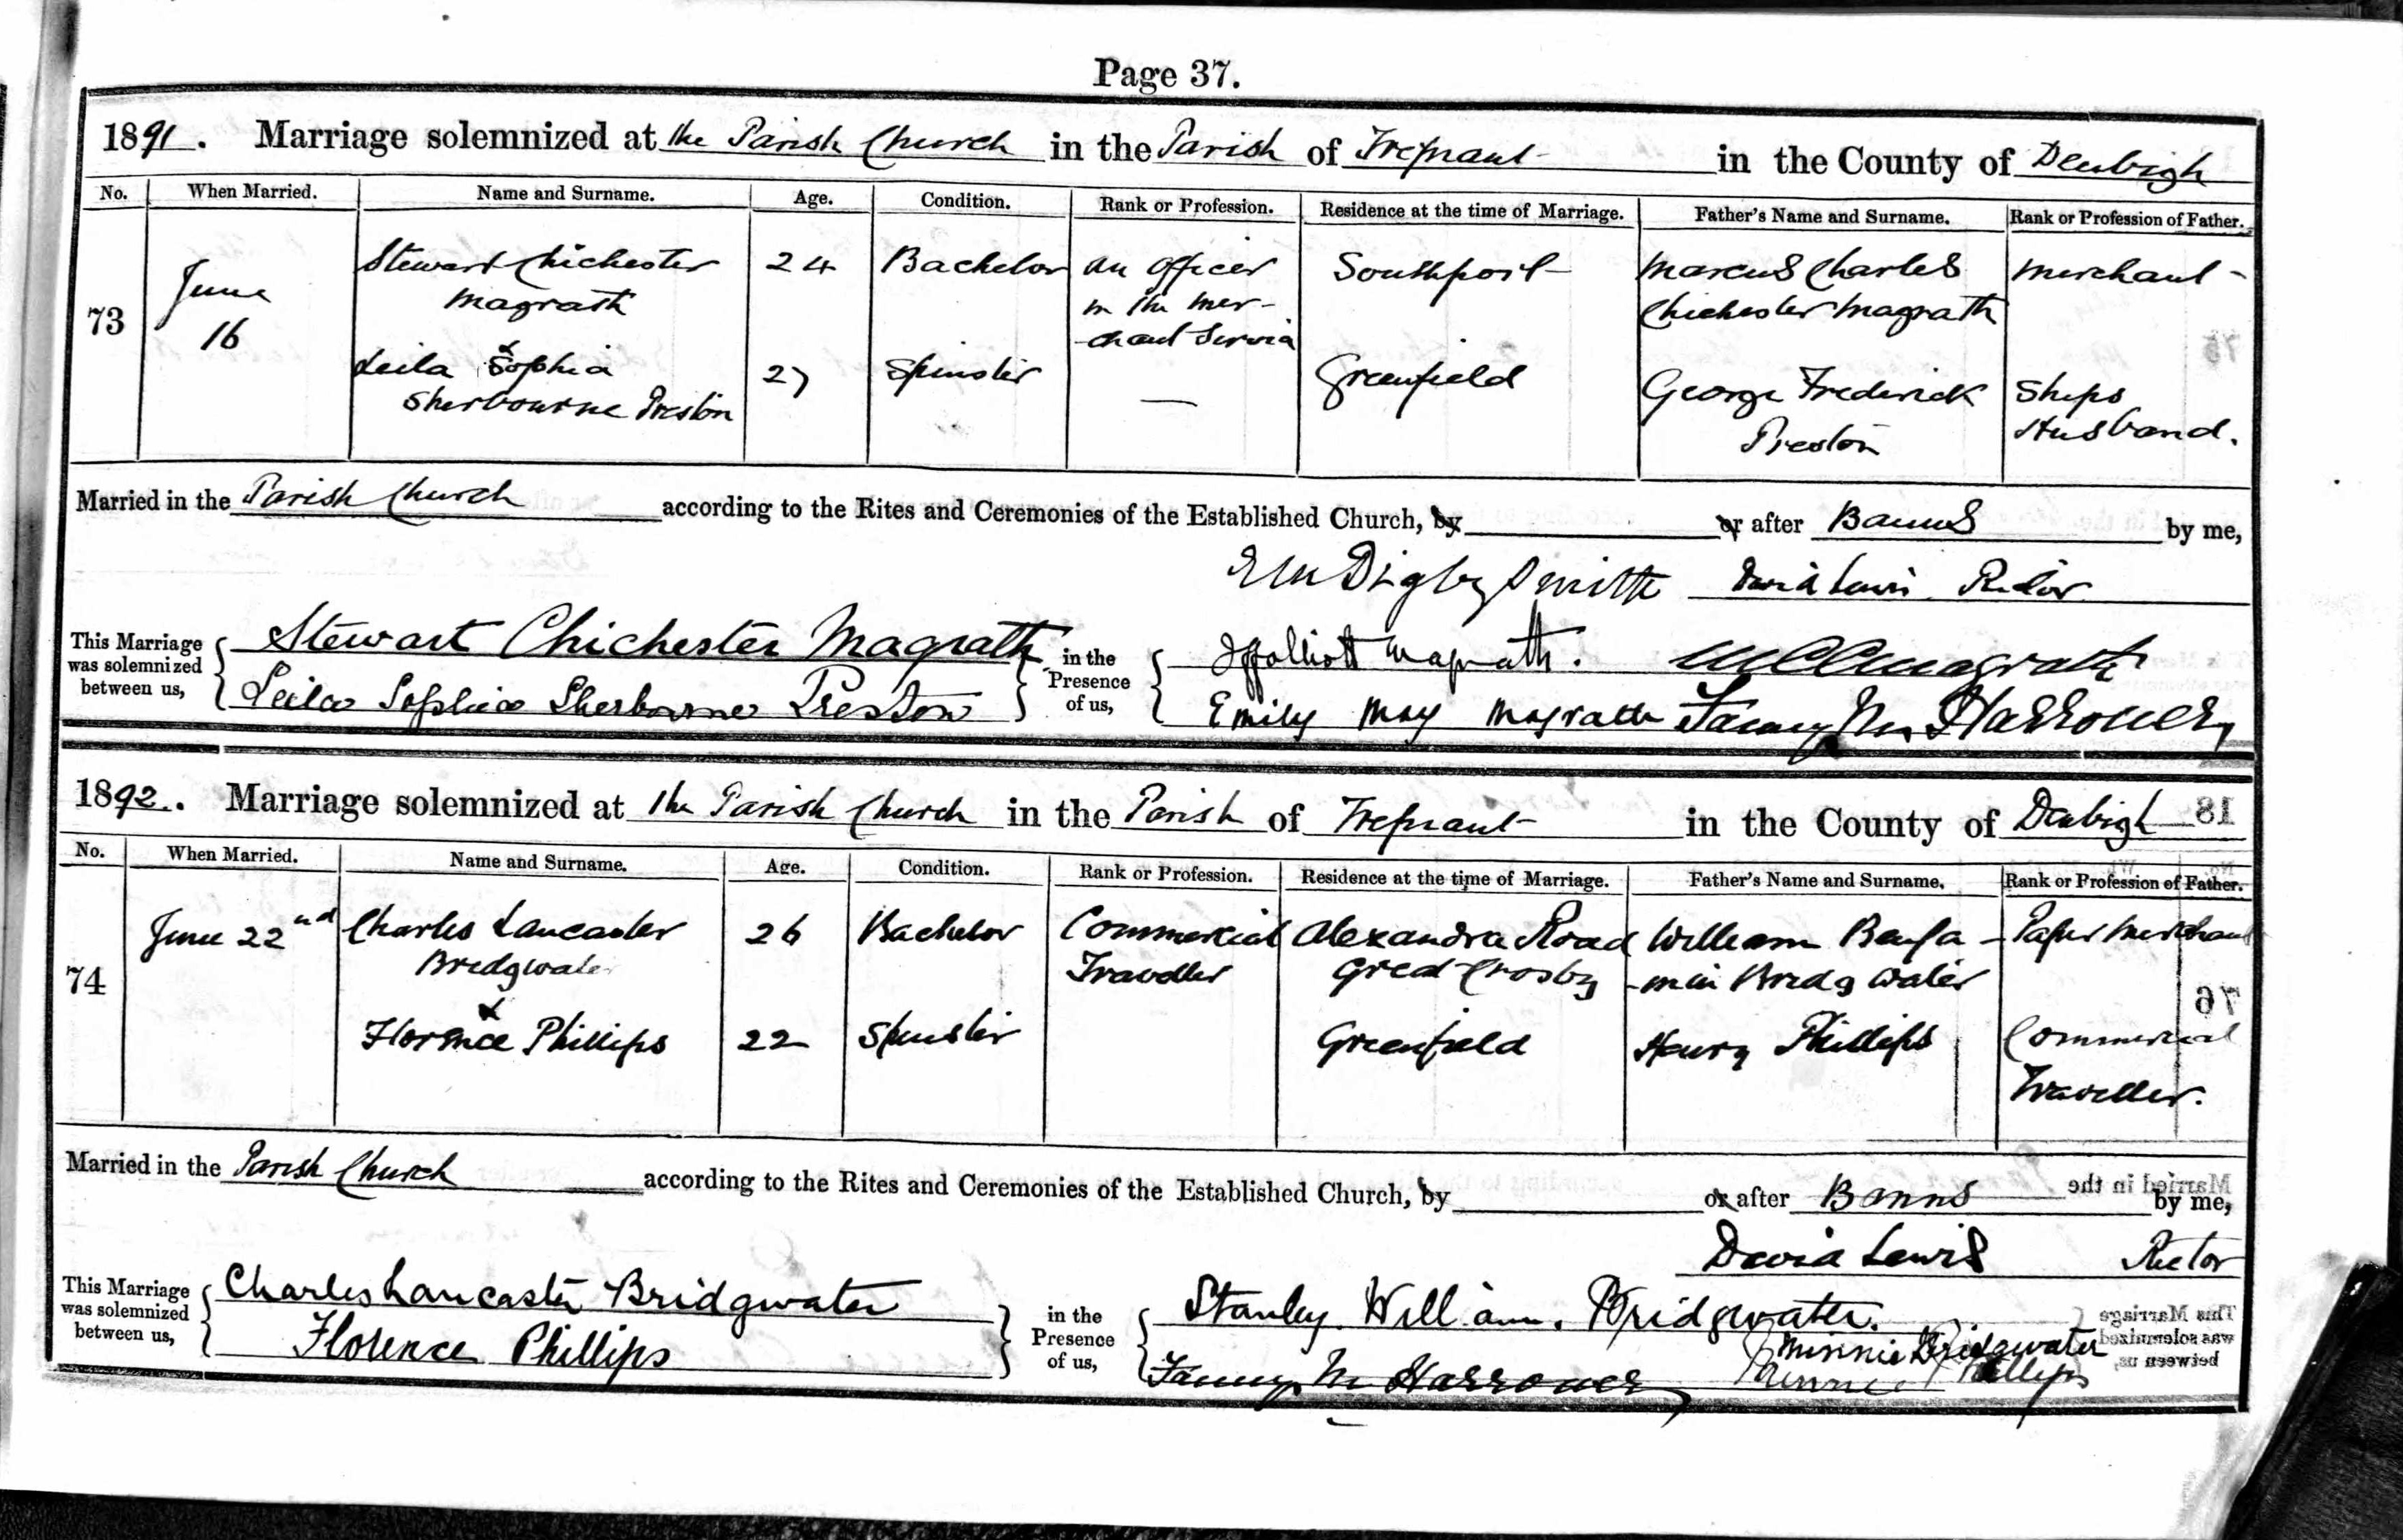 Page 37.
1891. Marriage solemnized at the Parish Church in the Parish of Trefnant in the County of Denbigh
No. When Married. Name and Surname. Age. Condition. Rank or Profession. Residence at the time of Marriage. Father's Name and Surname. Rank or Profession of Father.
73 June 16 Stewart Chichester Magrath 24 Bachelor an officer in the Mer-chant Service Southport Marcus Charles Chichester Magrath Merchant
&
Leila Sophia Sherbourne Preston 27 Spinster — Greenfield George Frederick Preston Ships Husband.
Married in the Parish Church according to the Rites and Ceremonies of the Established Church, by or after Banns by me,
Digby Smith David Lewis Rector
This Marriage was solemnized between us, Stewart Chichester Magrath in the Presence of us, Magrath. Magrath
Leila Sophia Sherbourne Preston Emily May Magrath Fanny M. Harrower
1892. Marriage solemnized at the Parish Church in the Parish of Trefnant in the County of Denbigh
No. When Married. Name and Surname. Age. Condition. Rank or Profession. Residence at the time of Marriage. Father's Name and Surname. Rank or Profession of Father.
74 June 22nd Charles Lancaster Bridgwater 26 Bachelor Commercial Traveller Alexandra Road Great Crosby William Benja-min Bridgwater Paper Merchant
&
Florence Phillips 22 Spinster Greenfield Henry Phillips Commercial Traveller.
Married in the Parish Church according to the Rites and Ceremonies of the Established Church, by or after Banns by me,
David Lewis Rector
This Marriage was solemnized between us, Charles Lancaster Bridgwater in the Presence of us, Stanley William Bridgwater.
Florence Phillips Fanny M. Harrower Minnie Bridgwater
Phillips